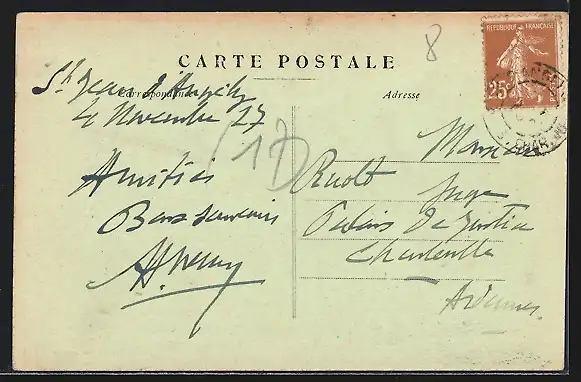 8
CARTE POSTALE
Correspondance
Adresse
RÉPUBLIQUE FRANÇAISE
25c
St Jean d'Angély
4 Novembre 27
17
Amitiés
Bons souvenirs
Monsieur
Ruolt
Juge
Palais de Justice
Charleville
Ardennes